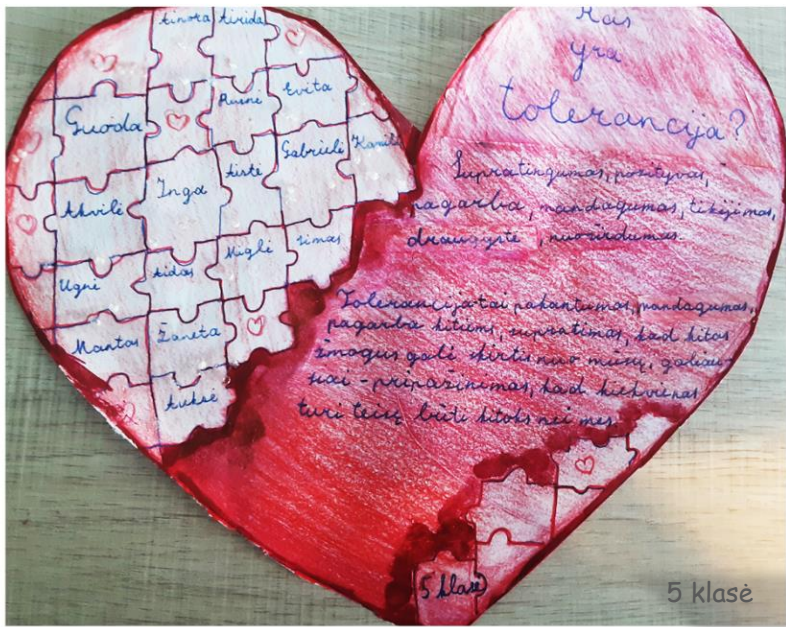 Ainora Airida
Guoda Rusnė Evita
Akvilė Inga Aistė Gabrielė Kamilė
Ugnė Aidas Miglė Simas
Mantas Žaneta
Auksė
Kas
yra
tolerancija?
Supratingumas, pozityvas,
pagarba, mandagumas, tikėjimas,
draugystė, nuoširdumas
Tolerancija-tai pakantumas, mandagumas,
pagarba kitiems, supratimas, kad kitas
žmogus gali skirtis nuo mūsų, galiau-
siai - pripažinimas, kad kiekvienas
turi teisę būti kitoks nei mes.
5 klasė
5 klasė